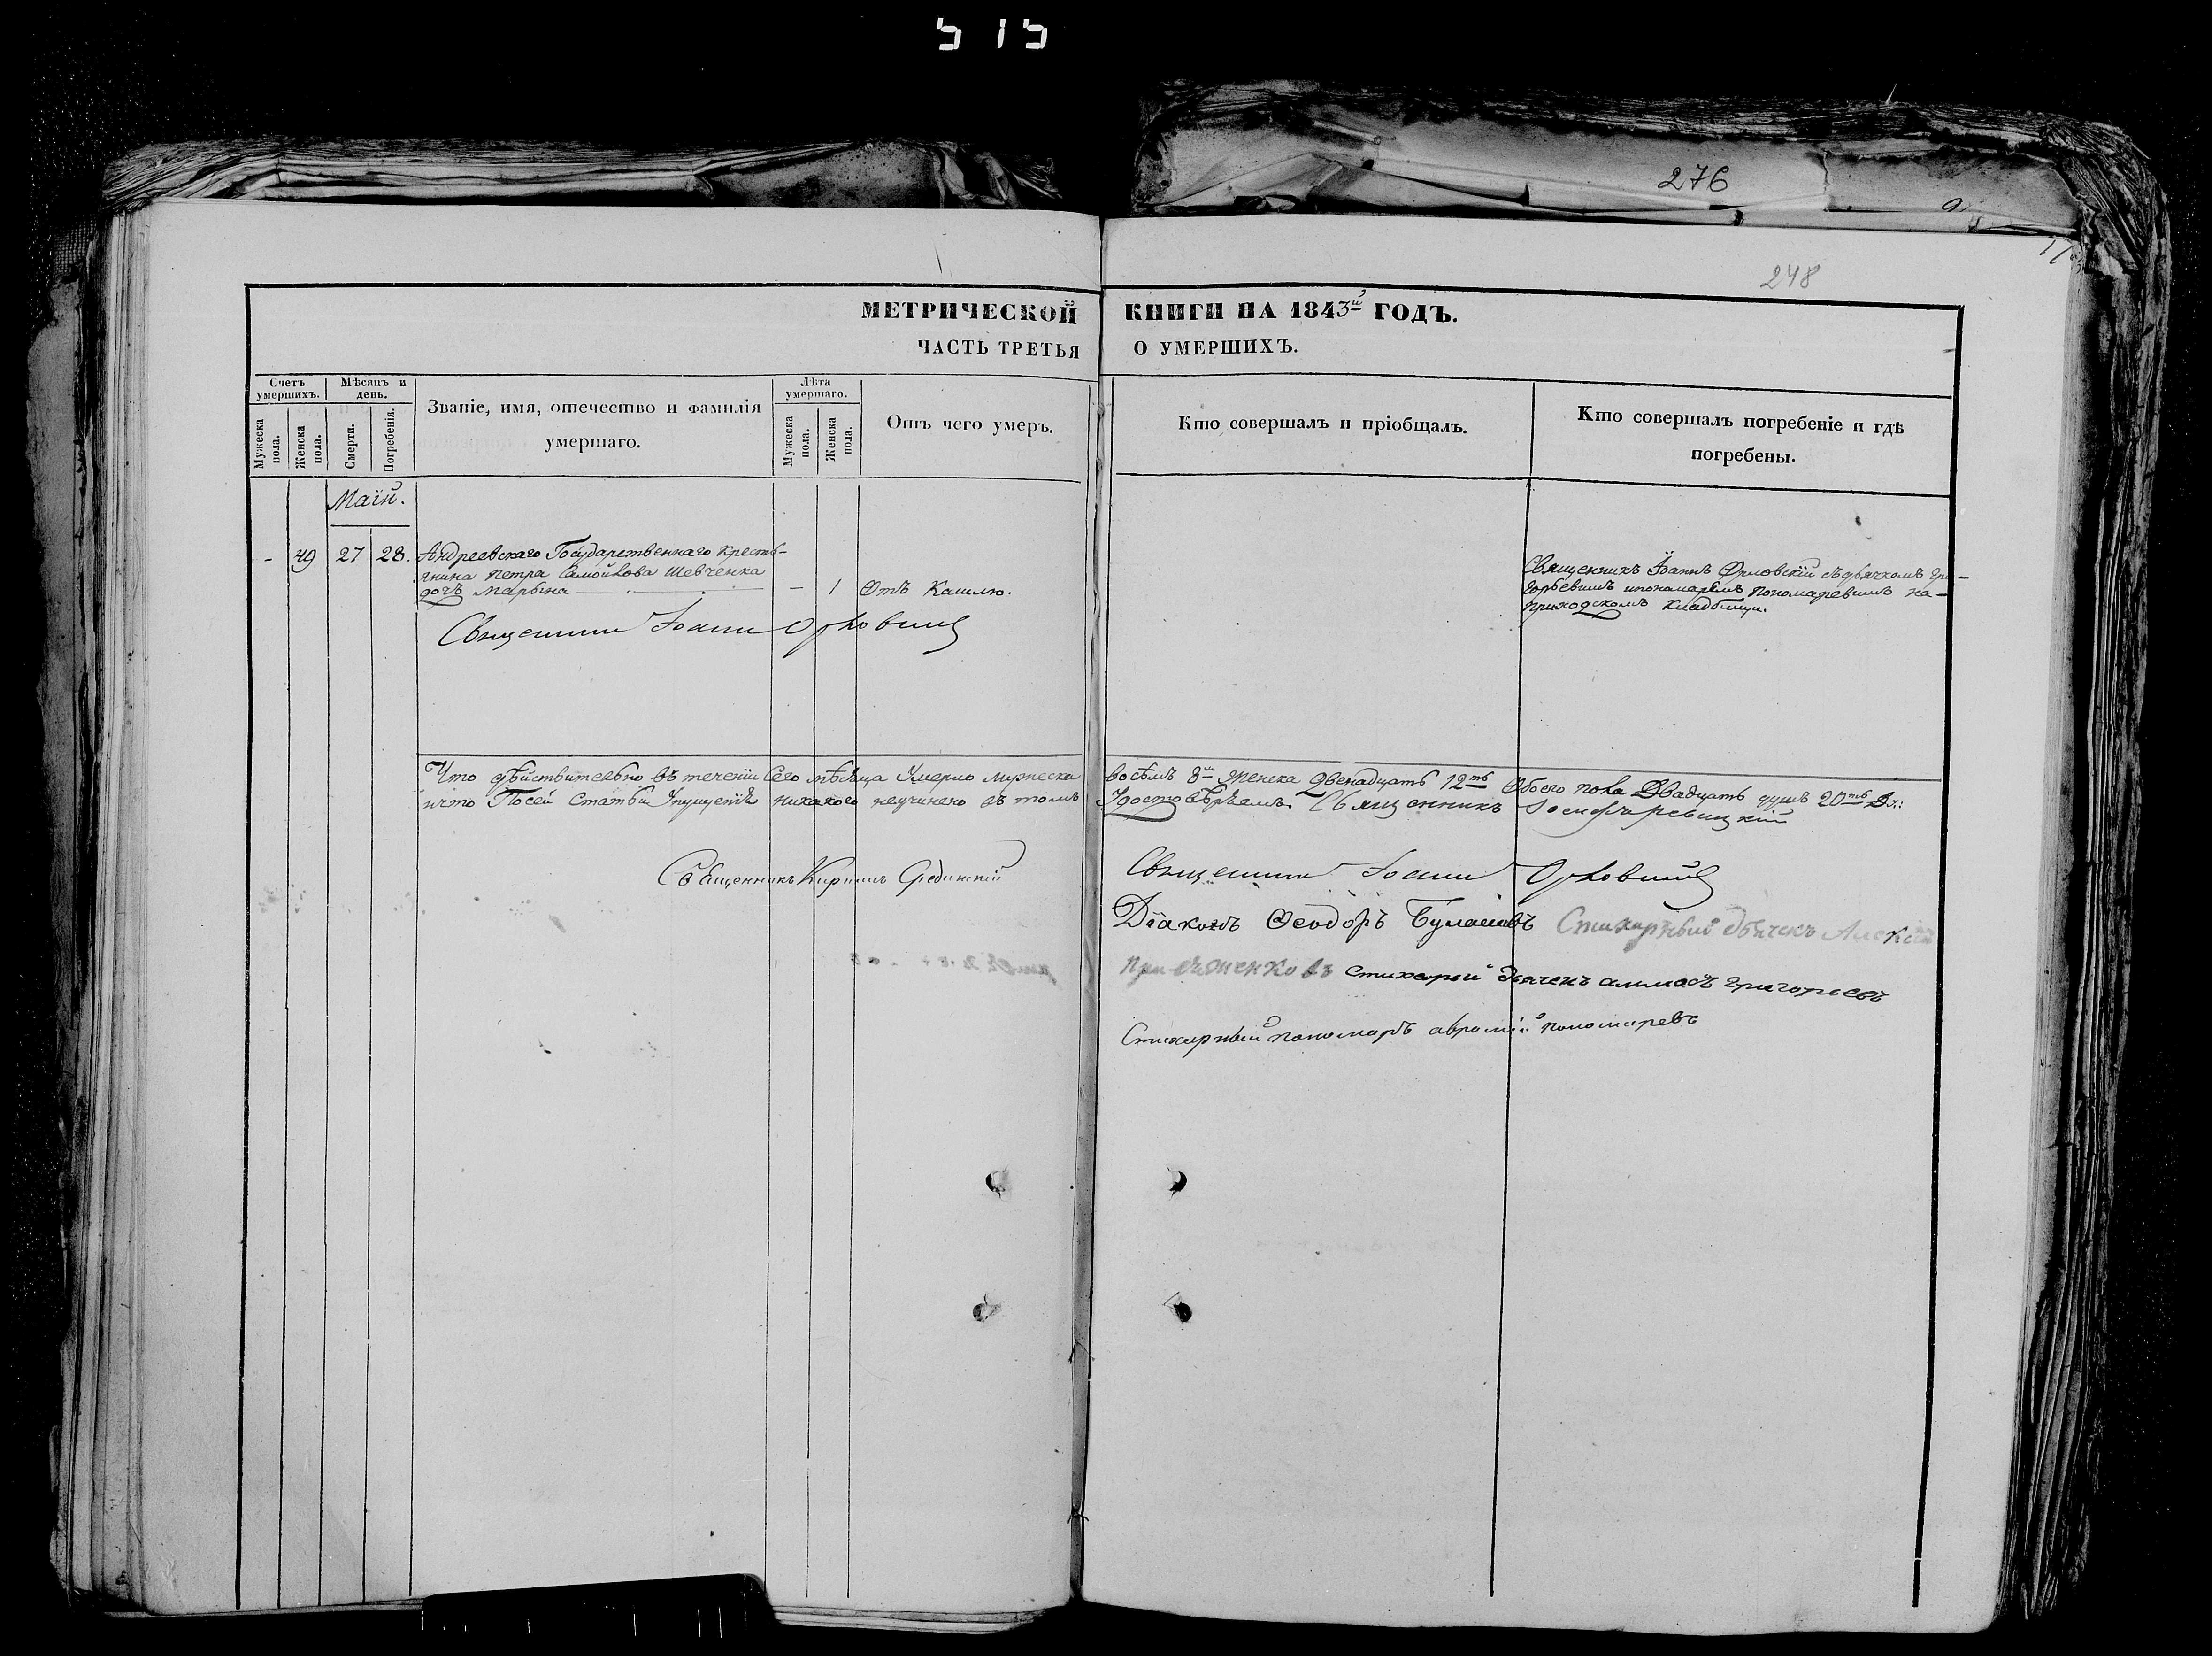 515
276
248
МЕТРИЧЕСКОЙ КНИГИ НА 1843й ГОДЪ.
ЧАСТЬ ТРЕТЬЯ О УМЕРШИХЪ.
Счетъ умершихъ.
Мужеска пола.
Женска пола.
Мѣсяцъ и день.
Смерти.
Погребенія.
Званіе, имя, отечество и фамилія умершаго.
Лѣта умершаго.
Мужеска пола.
Женска пола.
Отъ чего умеръ.
Кто совершалъ и пріобщалъ.
Кто совершалъ погребеніе и гдѣ погребены.
Маій.
- 49 27 28. Андреевскаго Государственнаго Кресть-
янина Петра Самойлова Шевченка
дочь Марьина - 1 Отъ Кашлю.
Священникъ Іоаннъ Орловскій съ дьячкомъ Гри-
горьевимъ и пономарёмъ Пономаревимъ на-
приходскомъ кладбищи.
Священникъ Іоаннъ Орловскій
Что дѣйствительно въ теченіи Сего мѣсяца Умерло мужеска восѣмъ 8м Женска Двенадцать 12ть Обоего пола Двадцать душъ 20ть Дх:
и что Посей Статьи Упущенія никакого неучинено въ томъ Удостовѣряемъ. Священникъ
Священникъ Кирилъ
Священникъ Іоаннъ Орловскій
Діаконъ Феодоръ Стихарный дьячекъ Алексій
стихарный дьячекъ Григорьевъ
Стихарный пономарь аврамій пономаревъ